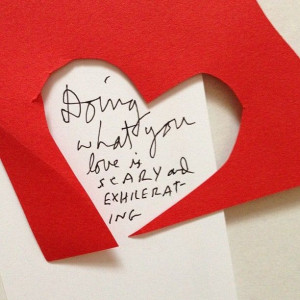 Doing
what you
love is
SCARY and
EXHILERAT-
ING